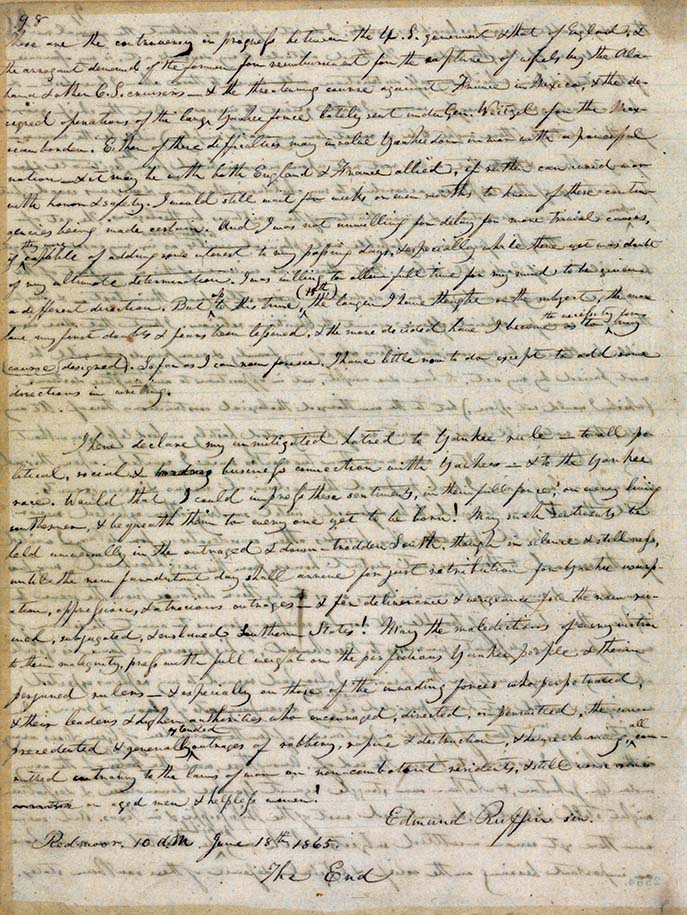 98
These are the controversy in progress between the U. S. government & that of England, &
the arrogant demands of the former for reimbursement for the capture of vessels by the Ala-
bama & other C. S. cruisers — & the threatening course against France in Mexico, & the de-
signed operations of the large Yankee force lately sent under Gen. Weitzel upon the Mex-
ican border. Either of these difficulties may involve Yankeedom in war with a powerful
nation — & it may be with both England & France allied, if neither can avoid war
with honor & safety. I would still wait for weeks or even months to know of these contin-
gencies being made certain. And I was not unwilling for delay for more trivial causes,
if they were capable of adding some interest to my passing days, & especially while there yet was doubt
of my ultimate determination. I was willing to allow full time for my mind to be
a different direction. But up to this time, (18th) the longer I have thought on the subject, the more
have my first doubts & fears been lessened, & the more decided have I become as to the
cause designed. So far as I can now foresee, I have little now to do except to add some
directions in writing.
I here declare my unmitigated hatred to Yankee rule — to all po-
litical, social & business connection with Yankees — & to the Yankee
race. Would that I could impress these sentiments, in their full force, on every living
southerner, & bequeath them to every one yet to be born! May such sentiments be
held universally in the outraged & down-trodden South, though in silence & stillness,
until the now far-distant day shall arrive for just retribution for Yankee usurp-
ation, oppression, & atrocious outrages — & for deliverance & vengeance for the now ru-
ined, subjugated, & enslaved Southern States! May the maledictions of every victim
to their malignity, press with full weight on the perfidious Yankee people & their
perjured rulers — & especially on those of the invading forces who perpetrated,
& their leaders & higher authorities who encouraged, directed, or permitted, the unpre-
cedented & generally extended outrages of robbery, rapine & destruction, & all com-
mitted contrary to the laws of war on non-combatant residents, & still worse
on aged men & helpless women!
Edmund Ruffin sen.
Redmoor. 10 A.M June 18th 1865.
The End